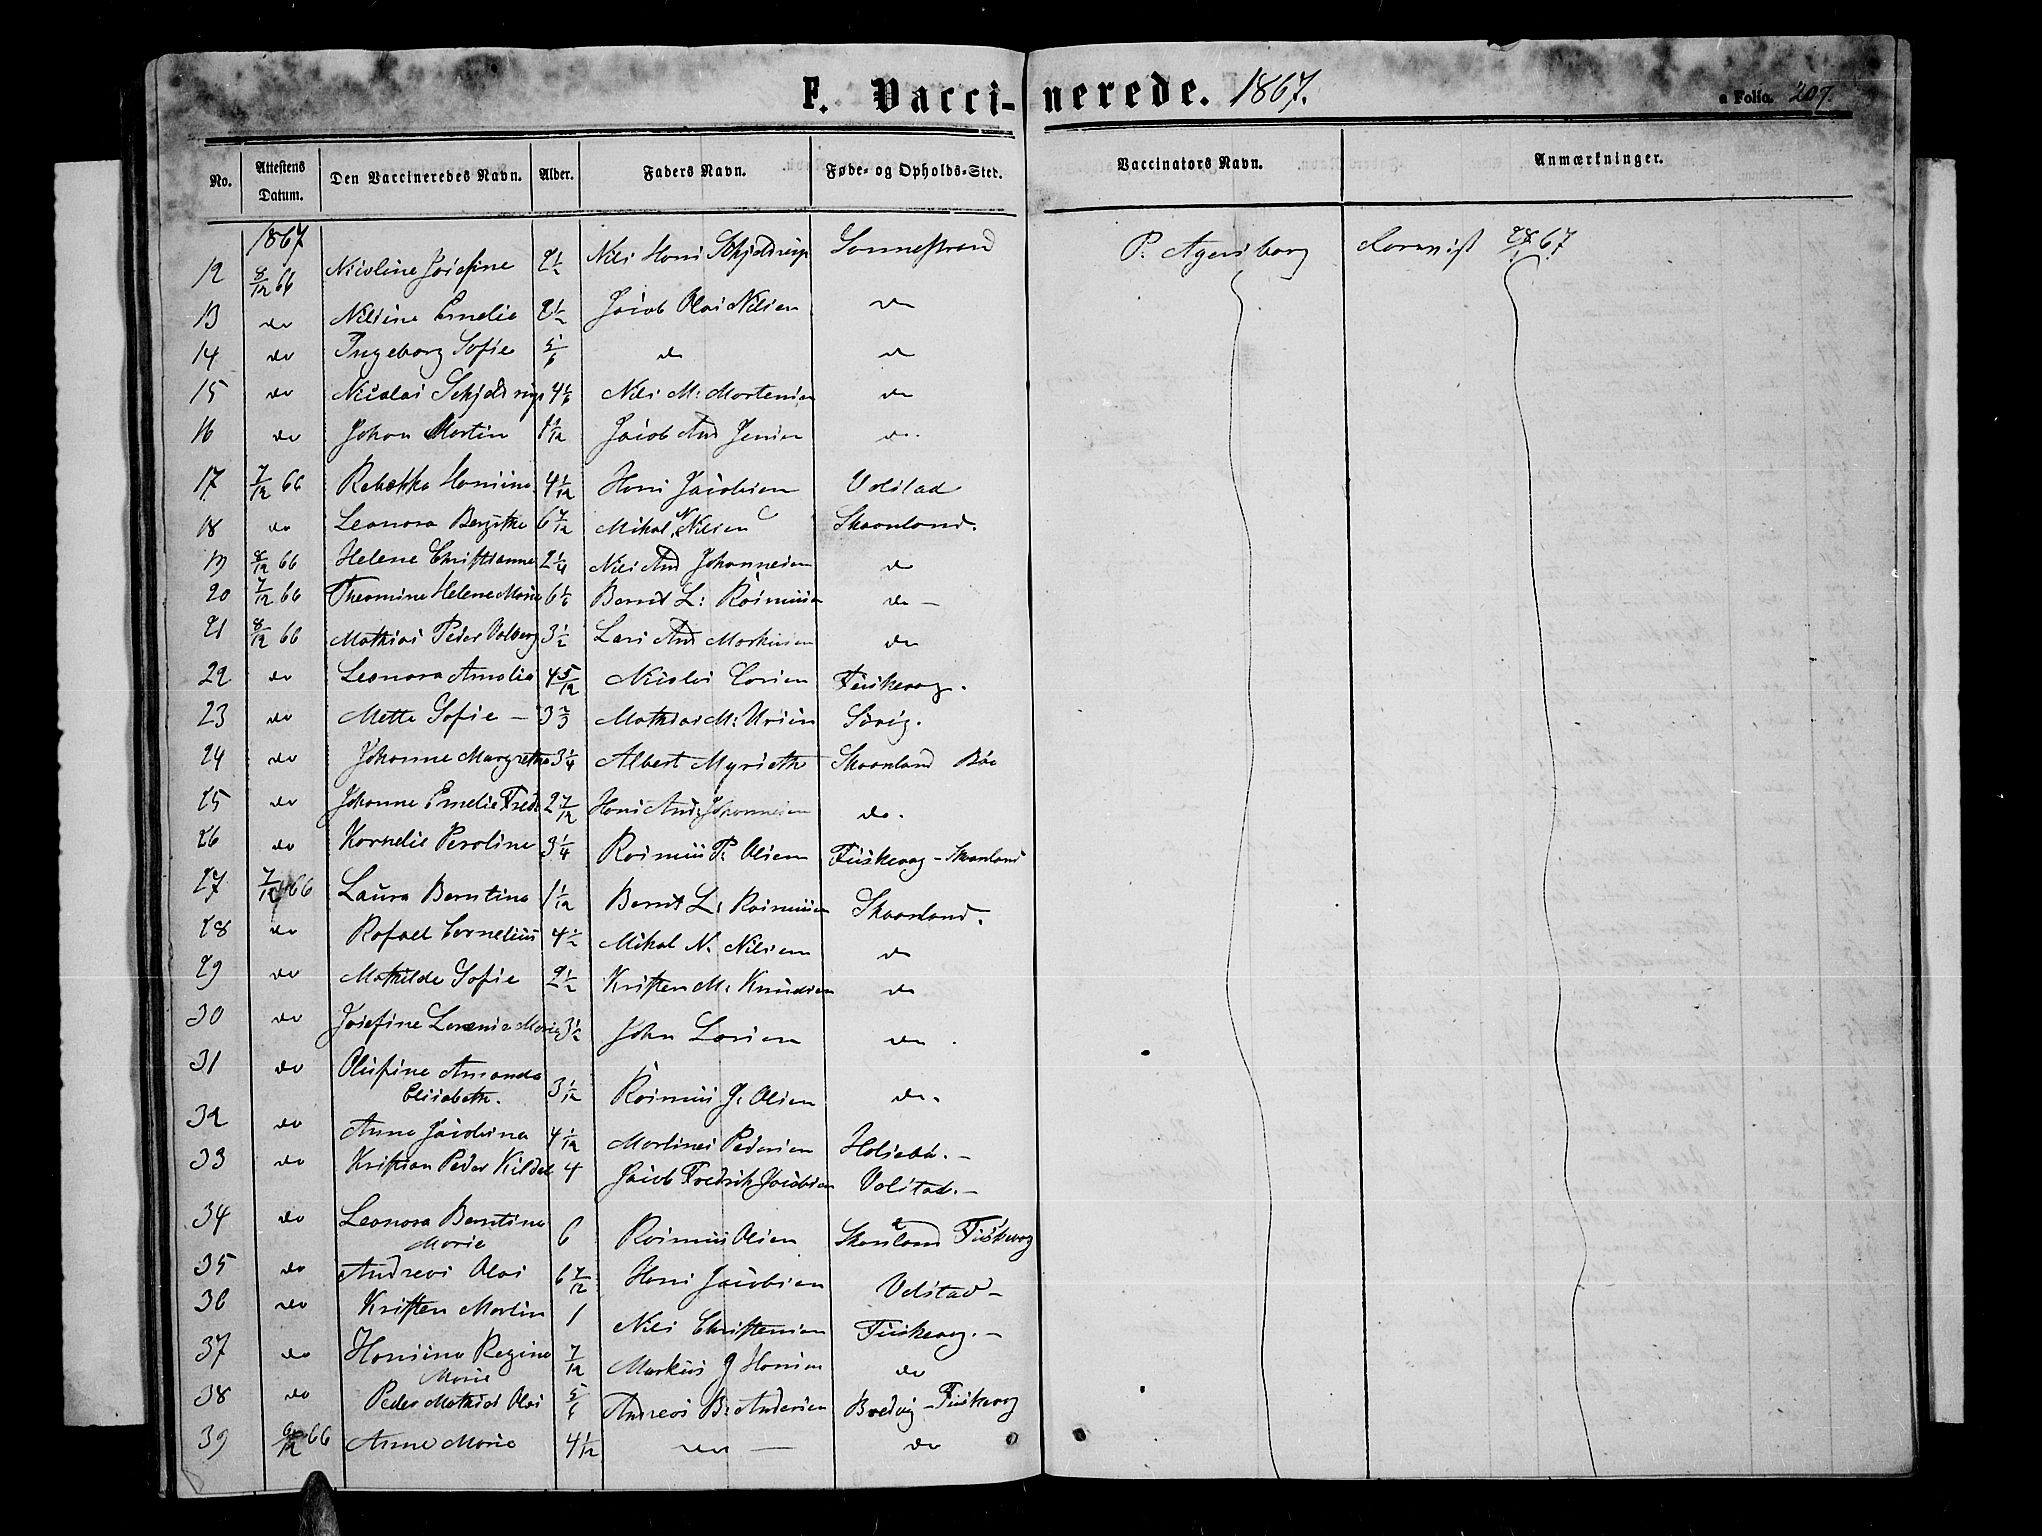 F. Vaccinerede. 1867.
a Folio. 207.
No. Attestens Datum. Den Vaccineredes Navn. Alder. Faders Navn. Føde- og Opholds-Sted. Vaccinators Navn. Anmærkninger.
1867
12 8/12 66 Nicoline Josefine 2 1/2 Nils Hans Schjeldrup Sonnestrand P. Agersborg 67
13 do Nilsine Emelie 2 1/2 Jacob Olai Nilsen do
14 do Ingeborg Sofie 5/6 do do
15 do Nicolai Schjeldrup 4 1/6 Nils M: Mortensen do
16 do Johan Martin 1 11/12 Jacob And Jensen do.
17 7/12 66 Rebekka Hansine 4 1/12 Hans Jacobsen Volstad
18 do Leonora Bergithe 6 7/12 Mikal N. Nilsen Skaanland.
19 8/12 66 Helene Christianne 2 1/4 Nils And Johannesen do
20 7/12 66 Theomine Helene Marie 6 1/6 Bernt L: Rasmussen do -
21 8/12 66 Mathias Peder Volberg 3 1/2 Lars And Markussen do
22 do Leonora Amalia 4 5/12 Nicolai Larsen Fiskevaag.
23 do Mette Sofie - 3 2/3 Mathias M:
24 do Johanne Margrethe 3 1/4 Albert Myrseth Skaanland Bøe
25 do Johanne Emelie Fred: 2 7/12 Hans And: Johannesen do.
26 do Kornelie Peroline 3 1/4 Rasmus P: Olsen Fuskevaag - Skaanland
27 7/12 66 Laura Berntine 1 1/12 Bernt L: Rasmussen Skaanland.
28 do Rafael Cornelius 4 1/2 Mikal N. Nilsen do
29 do Mathilde Sofie 2 1/2 Kristen M: Knudsen do
30 do Josefine Lorensa Marie 3 1/2 John Larsen do
31 do Olufine Amanda Elisabeth. 3 1/12 Rasmus J: Olsen do.
32 do Anne Jacobine 4 1/12 Martines Pedersen
33 do Kristian Peder Kildal 4 Jacob Fredrik Jacobsen Volstad. -
34 do Leonora Berntine Marie 6 Rasmus Olsen Skaanland Fuskevaag
35 do Andreas Olai 6 7/12 Hans Jacobsen Volstad -
36 do Kristen Martin 1 Nils Christensen Fuskevaag. -
37 do Hansine Regine Marie 7/12 Markus J Hansen do
38 do Peder Mathias Olai 5/6 Andreas B: Andersen Bredvig - Fuskevaag
39 /12 66 Anne Marie 4 1/12 do - do